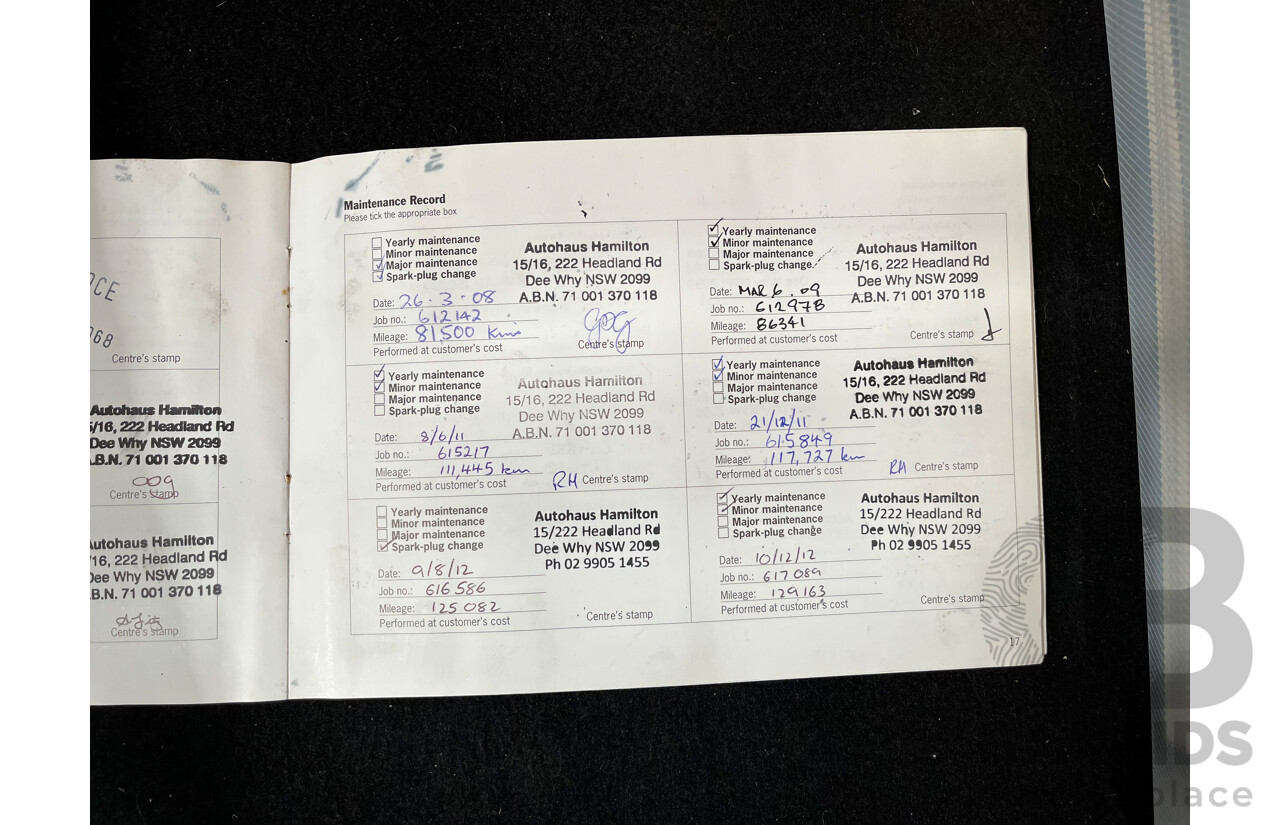 CE
068
Centre's stamp
Autohaus Hamilton
5/16, 222 Headland Rd
Dee Why NSW 2099
.B.N. 71 001 370 118
009
Centre's stamp
utohaus Hamilton
16, 222 Headland Rd
Dee Why NSW 2099
.B.N. 71 001 370 118
Centre's stamp
Maintenance Record
Please tick the appropriate box
Yearly maintenance
Minor maintenance
Major maintenance
Spark-plug change
Autohaus Hamilton
15/16, 222 Headland Rd
Dee Why NSW 2099
A.B.N. 71 001 370 118
Date: 26.3.08
Job no.: 612142
Mileage: 81,500 Kms
Performed at customer's cost
Centre's stamp
Yearly maintenance
Minor maintenance
Major maintenance
Spark-plug change
Autohaus Hamilton
15/16, 222 Headland Rd
Dee Why NSW 2099
A.B.N. 71 001 370 118
Date: MAR 6.09
Job no.: 612978
Mileage: 86341
Performed at customer's cost
Centre's stamp
Yearly maintenance
Minor maintenance
Major maintenance
Spark-plug change
Autohaus Hamilton
15/16, 222 Headland Rd
Dee Why NSW 2099
A.B.N. 71 001 370 118
Date: 8/6/11
Job no.: 615217
Mileage: 111,445 km
Performed at customer's cost
RH Centre's stamp
Yearly maintenance
Minor maintenance
Major maintenance
Spark-plug change
Autohaus Hamilton
15/16, 222 Headland Rd
Dee Why NSW 2099
A.B.N. 71 001 370 118
Date: 21/12/11
Job no.: 615849
Mileage: 117,727 km
Performed at customer's cost
RH Centre's stamp
Yearly maintenance
Minor maintenance
Major maintenance
Spark-plug change
Autohaus Hamilton
15/222 Headland Rd
Dee Why NSW 2099
Ph 02 9905 1455
Date: 9/8/12
Job no.: 616586
Mileage: 125082
Performed at customer's cost
Centre's stamp
Yearly maintenance
Minor maintenance
Major maintenance
Spark-plug change
Autohaus Hamilton
15/222 Headland Rd
Dee Why NSW 2099
Ph 02 9905 1455
Date: 10/12/12
Job no.: 617089
Mileage: 129163
Performed at customer's cost
Centre's stamp
17
B
IDS
place